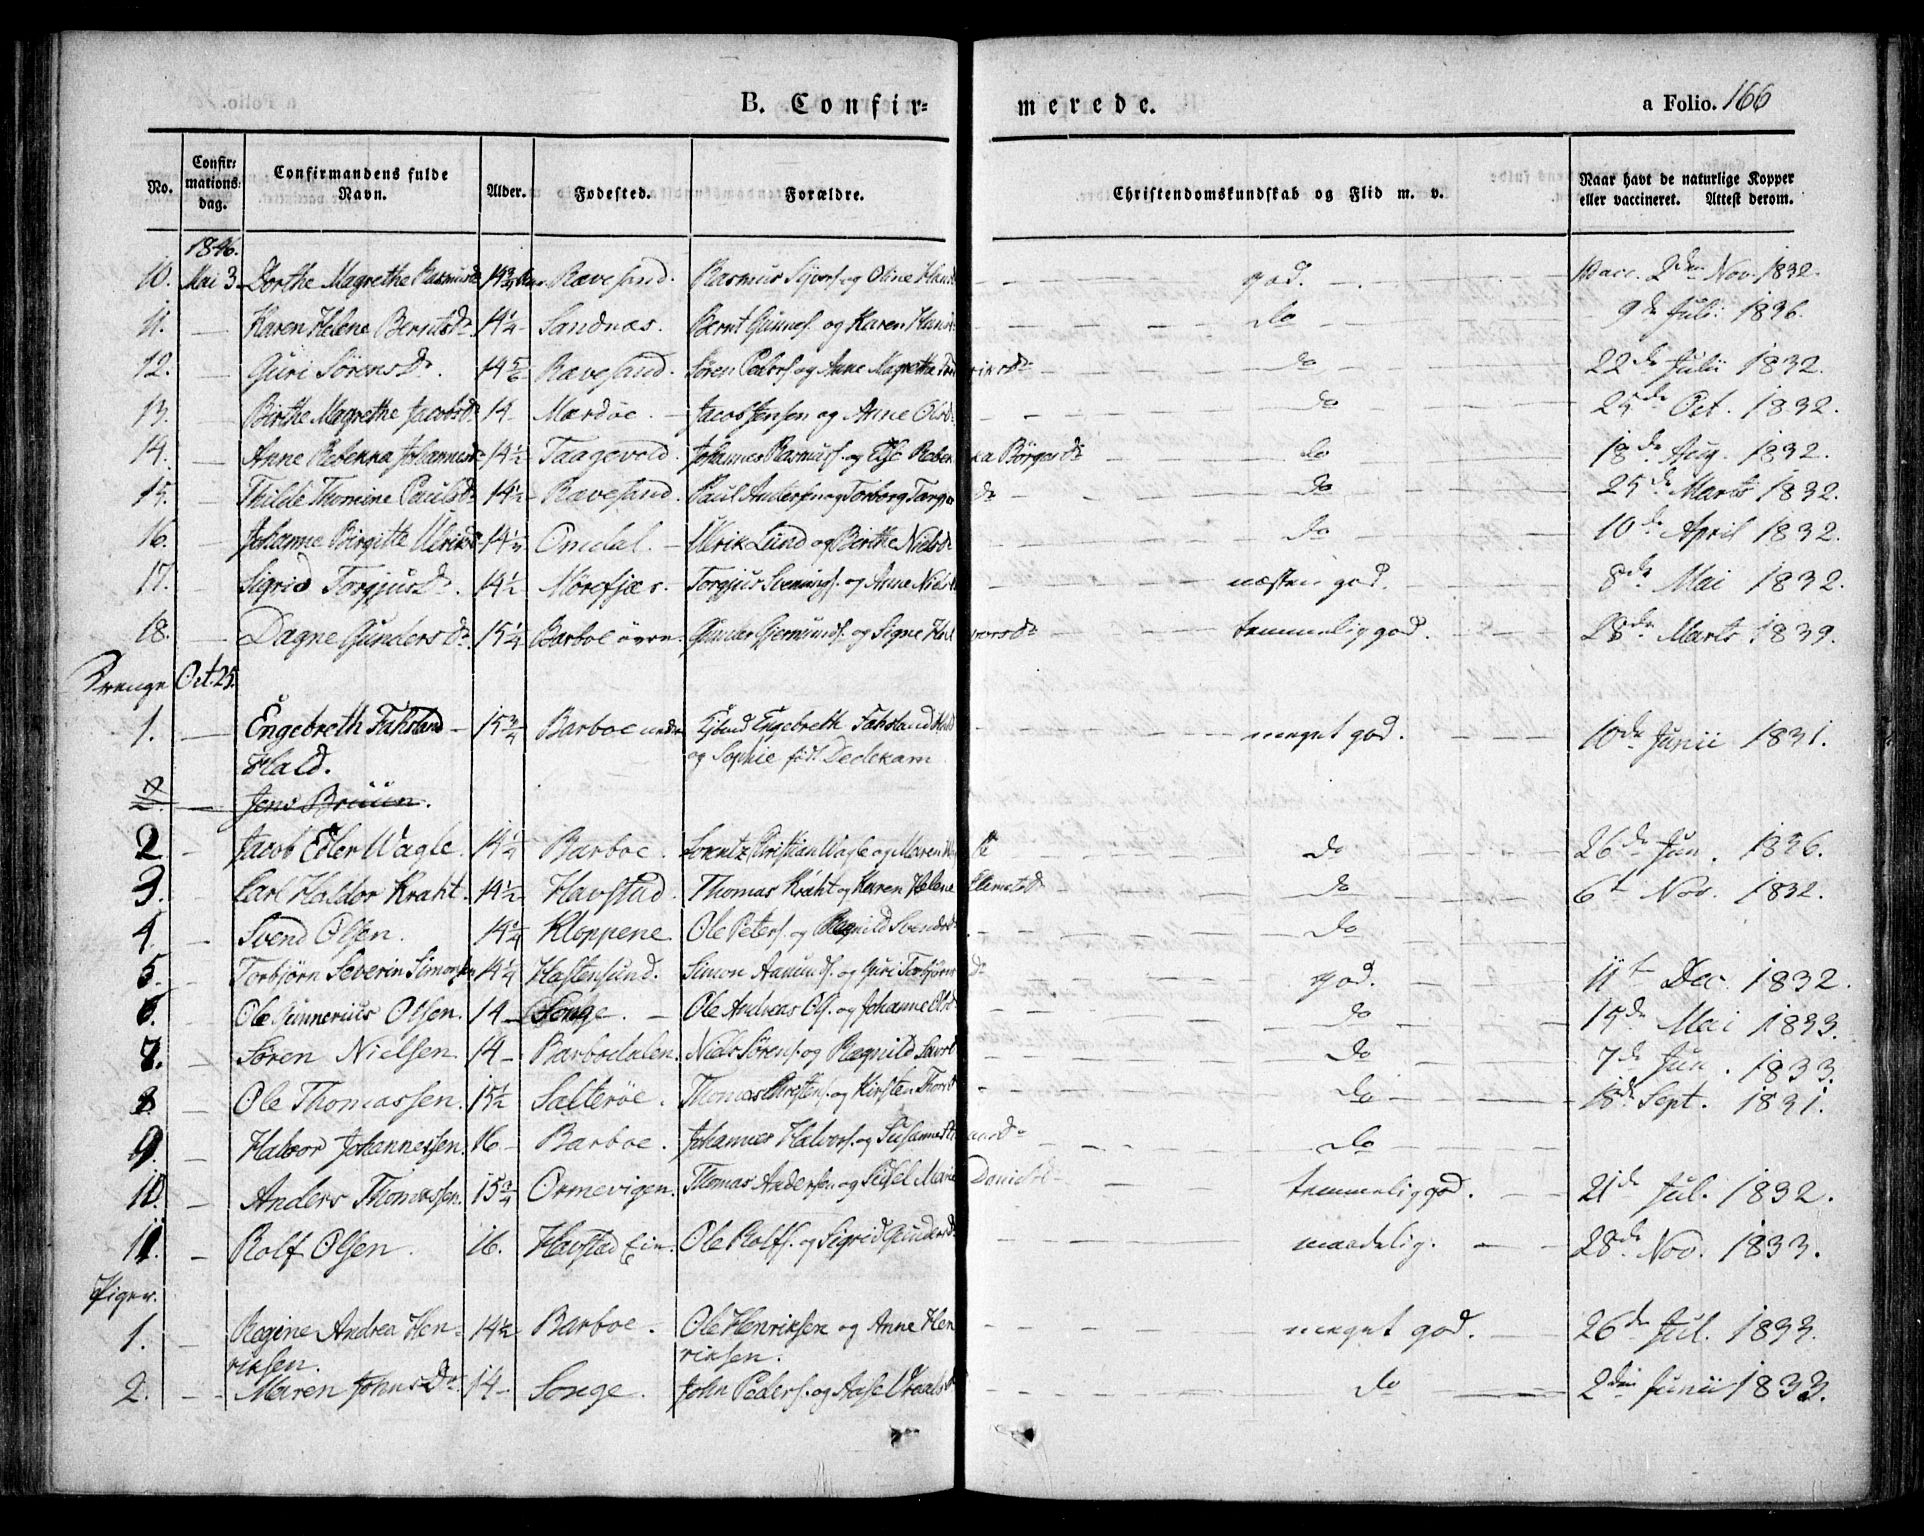 B. Confir=
merede.
a Folio. 166
No.
Confir:
mations:
dag.
Confirmandens fulde
Navn.
Alder.
Fødested.
Forældre.
Christendomskundskab og Flid m. v.
Naar havt de naturlige Kopper
eller vaccineret. Attest derom.
1846.
10. Mai 3 Dorthe Magrethe Rasmusd. 14 3/4 Ravesand. Rasmus og Oline god. Vacc. 2den Nov. 1832.
11. — Karen Helene Berntsdr. 14 1/4 Sandnæs. Bernt Gunnds. og Karen Hansd. do 9de Juli 1836.
12. — Guri Sørensdr. 14 5/6 Ravesand. Søren Peders. og Anne Magrethe do 22de Julii 1832.
13. — Birthe Magrethe Jacobsdr. 14 Mærdøe. — Jacob Jensen og Anne Olsd. do 25de Oct. 1832.
14. — Anne Rebekka Johannesdr. 14 1/2 Taagevold. Johannes Rasmuss. og Else Rebekka Børgesdr do 18de Aug. 1832.
15. — Thilde Thomine Paulsdr. 14 1/2 Ravesand. Paul Andersen og Torborg do 25de Marts 1832.
16. Johanne Birgitte Ulriksdr. 14 1/4 Omdal. — Ulrik Lund og Birthe Nielsd. do 10de April 1832.
17. — Sigrid Torgjusdr. 14 1/2 Mørefjær. Torgjus Svennings. og Anne Nielsd. næsten god. 8de Mai 1832.
18. — Dagne Gundersdr. 15 1/4 Barboe øvre. Gunder Gjermunds. og Signe Halvorsdr temmelig god. 28de Marts 1839.
Drenge Oct. 25.
1. — Engebreth Fahsland — 15 3/4 Barboe nedre Engebreth Fahsland Hald meget god. 10de Junii 1831.
Hald. og Sophie fød. Dedekam
2. — Jens Bruun.
2 - Jacob Edler Wagle. 14 1/4 Barboe. Lorentz Christian Wagle og Maren do 26de Jun. 1836.
3. - Carl Haldor Kraht. 14 1/2 Havstad. Thomas Kraht og Karen Helene do 6t Nov. 1832.
4 - Svend Olsen. 14 1/4 Kloppene Ole Peters. og Ragnild Svendsd. do
5. - Torbjørn Severin Simonsen 14 1/4 Hastensund. Simon Aanunds. og Guri Torbjørnsd god. 11t Dec. 1832.
6. - Ole Gunnerius Olsen. 14 — Songe. — Ole Andreas Ols. og Johanne Olsd. do 15de Mai 1833.
7. - Søren Nielsen 14 - Barbodalen. Niels Sørens. og Ragnild do 7de Jun. 1833.
8 - Ole Thomassen. 15 1/2 Salterøe. Thomas Christens. og Kirsten do 18de Sept. 1831.
9. - Halvor Johannessen. 16 - Barboe. Johannes Halvors. og Susanne do
10. - Anders Thomassen. 15 3/4 Ormevigen. Thomas Andersen og Sidsel Marie Danielsd. temmelig god. 21de Jul. 1832.
11. - Rolf Olsen. 16. Havstad Eie. Ole Rolfs. og Sigrid Gundersd. maadelig. 28de Nov. 1833.
Piger.
1. - Regine Andrea Hen= 14 1/2 Barboe. Ole Henriksen og Anne Hen meget god. 26de Jul. 1833.
riksen. riksen.
2. - Maren Johnsdr 14 - Songe. John Peders. og Aase do 2den Junii 1833.